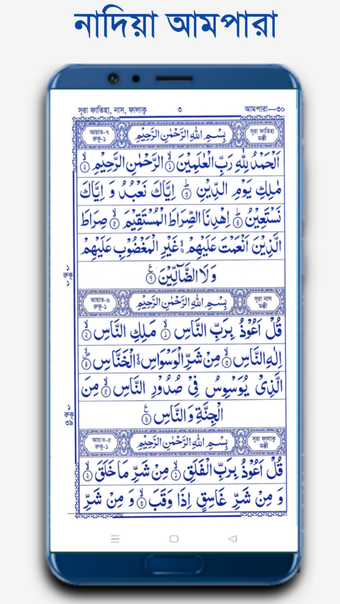 নাদিয়া আমপারা
সূরা ফাতিহা, নাস, ফালাক্ব ৩ আমপারা—৩০
আয়াত-৭ রুকু-১ بِسْمِ اللهِ الرَّحْمٰنِ الرَّحِيْمِ সূরা ফাতিহা মক্কী
اَلْحَمْدُ لِلّٰهِ رَبِّ الْعٰلَمِيْنَ ۝ الرَّحْمٰنِ الرَّحِيْمِ ۝
مٰلِكِ يَوْمِ الدِّيْنِ ۝ اِيَّاكَ نَعْبُدُ وَ اِيَّاكَ
نَسْتَعِيْنُ ۝ اِهْدِنَا الصِّرَاطَ الْمُسْتَقِيْمَ ۝ صِرَاطَ
الَّذِيْنَ اَنْعَمْتَ عَلَيْهِمْ ۝ غَيْرِ الْمَغْضُوْبِ عَلَيْهِمْ
وَلَا الضَّآلِّيْنَ ۝
আয়াত-৬ রুকু-১ بِسْمِ اللهِ الرَّحْمٰنِ الرَّحِيْمِ সূরা নাস মক্কী
قُلْ اَعُوْذُ بِرَبِّ النَّاسِ ۝ مَلِكِ النَّاسِ ۝
اِلٰهِ النَّاسِ ۝ مِنْ شَرِّ الْوَسْوَاسِ الْخَنَّاسِ ۝
الَّذِيْ يُوَسْوِسُ فِيْ صُدُوْرِ النَّاسِ ۝ مِنَ
الْجِنَّةِ وَالنَّاسِ ۝
আয়াত-৫ রুকু-১ بِسْمِ اللهِ الرَّحْمٰنِ الرَّحِيْمِ সূরা ফালাক্ব মক্কী
قُلْ اَعُوْذُ بِرَبِّ الْفَلَقِ ۝ مِنْ شَرِّ مَا خَلَقَ ۝
وَ مِنْ شَرِّ غَاسِقٍ اِذَا وَقَبَ ۝ وَ مِنْ شَرِّ